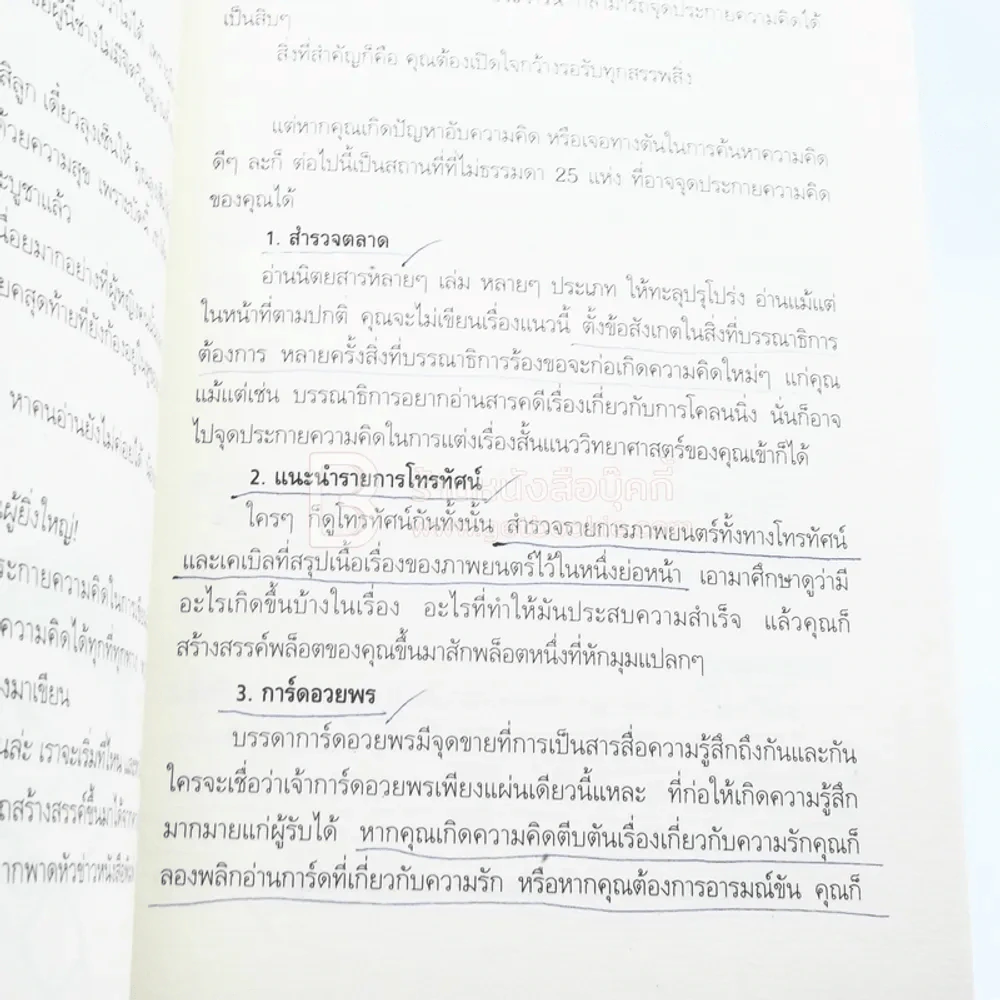 าไม่ได้
สิลูก เดี๋ยวลุงเซ็นให้
ด้วยความสุข เพราะบัดนี้
ะบูชาแล้ว
นื่อยมากอย่างที่ผู้หญิง
ยคสุดท้ายที่ยังก้อง
หาคนอ่านยังไม่ค่อยได้
ผู้ยิ่งใหญ่!
ะกายความคิดในการเขียน
ความคิดได้ทุกที่ทุกทาง
งมาเขียน
นล่ะ เราจะเริ่มที่ไหน
ถสร้างสรรค์ขึ้นมาได้จาก
ากพาดหัวข่าวหนังสือพิมพ์
สามารถจุดประกายความคิดได้
เป็นสิบๆ
สิ่งที่สำคัญก็คือ คุณต้องเปิดใจกว้างรอรับทุกสรรพสิ่ง
แต่หากคุณเกิดปัญหาอับความคิด หรือเจอทางตันในการค้นหาความคิด
ดีๆ ละก็ ต่อไปนี้เป็นสถานที่ที่ไม่ธรรมดา 25 แห่ง ที่อาจจุดประกายความคิด
ของคุณได้
1. สำรวจตลาด
อ่านนิตยสารหลายๆ เล่ม หลายๆ ประเภท ให้ทะลุปรุโปร่ง อ่านแม้แต่
ในหน้าที่ตามปกติ คุณจะไม่เขียนเรื่องแนวนี้ ตั้งข้อสังเกตในสิ่งที่บรรณาธิการ
ต้องการ หลายครั้งสิ่งที่บรรณาธิการร้องขอจะก่อเกิดความคิดใหม่ๆ แก่คุณ
แม้แต่เช่น บรรณาธิการอยากอ่านสารคดีเรื่องเกี่ยวกับการโคลนนิ่ง นั่นก็อาจ
ไปจุดประกายความคิดในการแต่งเรื่องสั้นแนววิทยาศาสตร์ของคุณเข้าก็ได้
2. แนะนำรายการโทรทัศน์
ร้านหนังสือบุ๊คกี้
ใครๆ ก็ดูโทรทัศน์กันทั้งนั้น สำรวจรายการภาพยนตร์ทั้งทางโทรทัศน์
และเคเบิลที่สรุปเนื้อเรื่องของภาพยนตร์ไว้ในหนึ่งย่อหน้า เอามาศึกษาดูว่ามี
อะไรเกิดขึ้นบ้างในเรื่อง อะไรที่ทำให้มันประสบความสำเร็จ แล้วคุณก็
สร้างสรรค์พล็อตของคุณขึ้นมาสักพล็อตหนึ่งที่หักมุมแปลกๆ
3. การ์ดอวยพร
บรรดาการ์ดอวยพรมีจุดขายที่การเป็นสารสื่อความรู้สึกถึงกันและกัน
ใครจะเชื่อว่าเจ้าการ์ดอวยพรเพียงแผ่นเดียวนี้แหละ ที่ก่อให้เกิดความรู้สึก
มากมายแก่ผู้รับได้ หากคุณเกิดความคิดตีบตันเรื่องเกี่ยวกับความรักคุณก็
ลองพลิกอ่านการ์ดที่เกี่ยวกับความรัก หรือหากคุณต้องการอารมณ์ขัน คุณก็